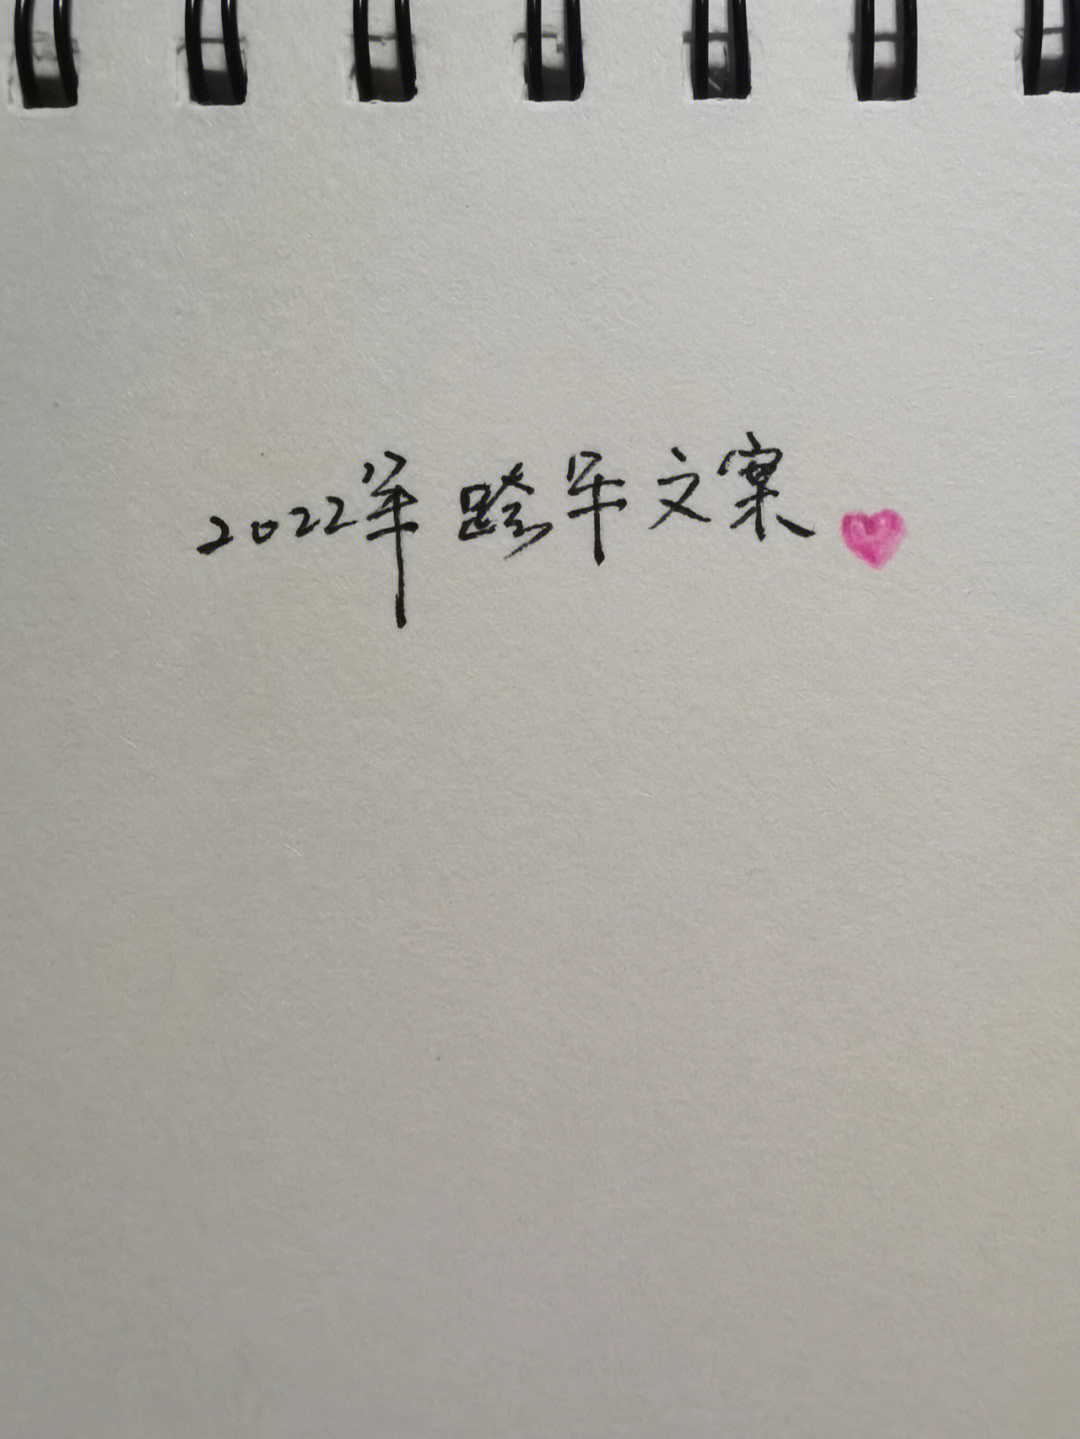 2022年跨年文案